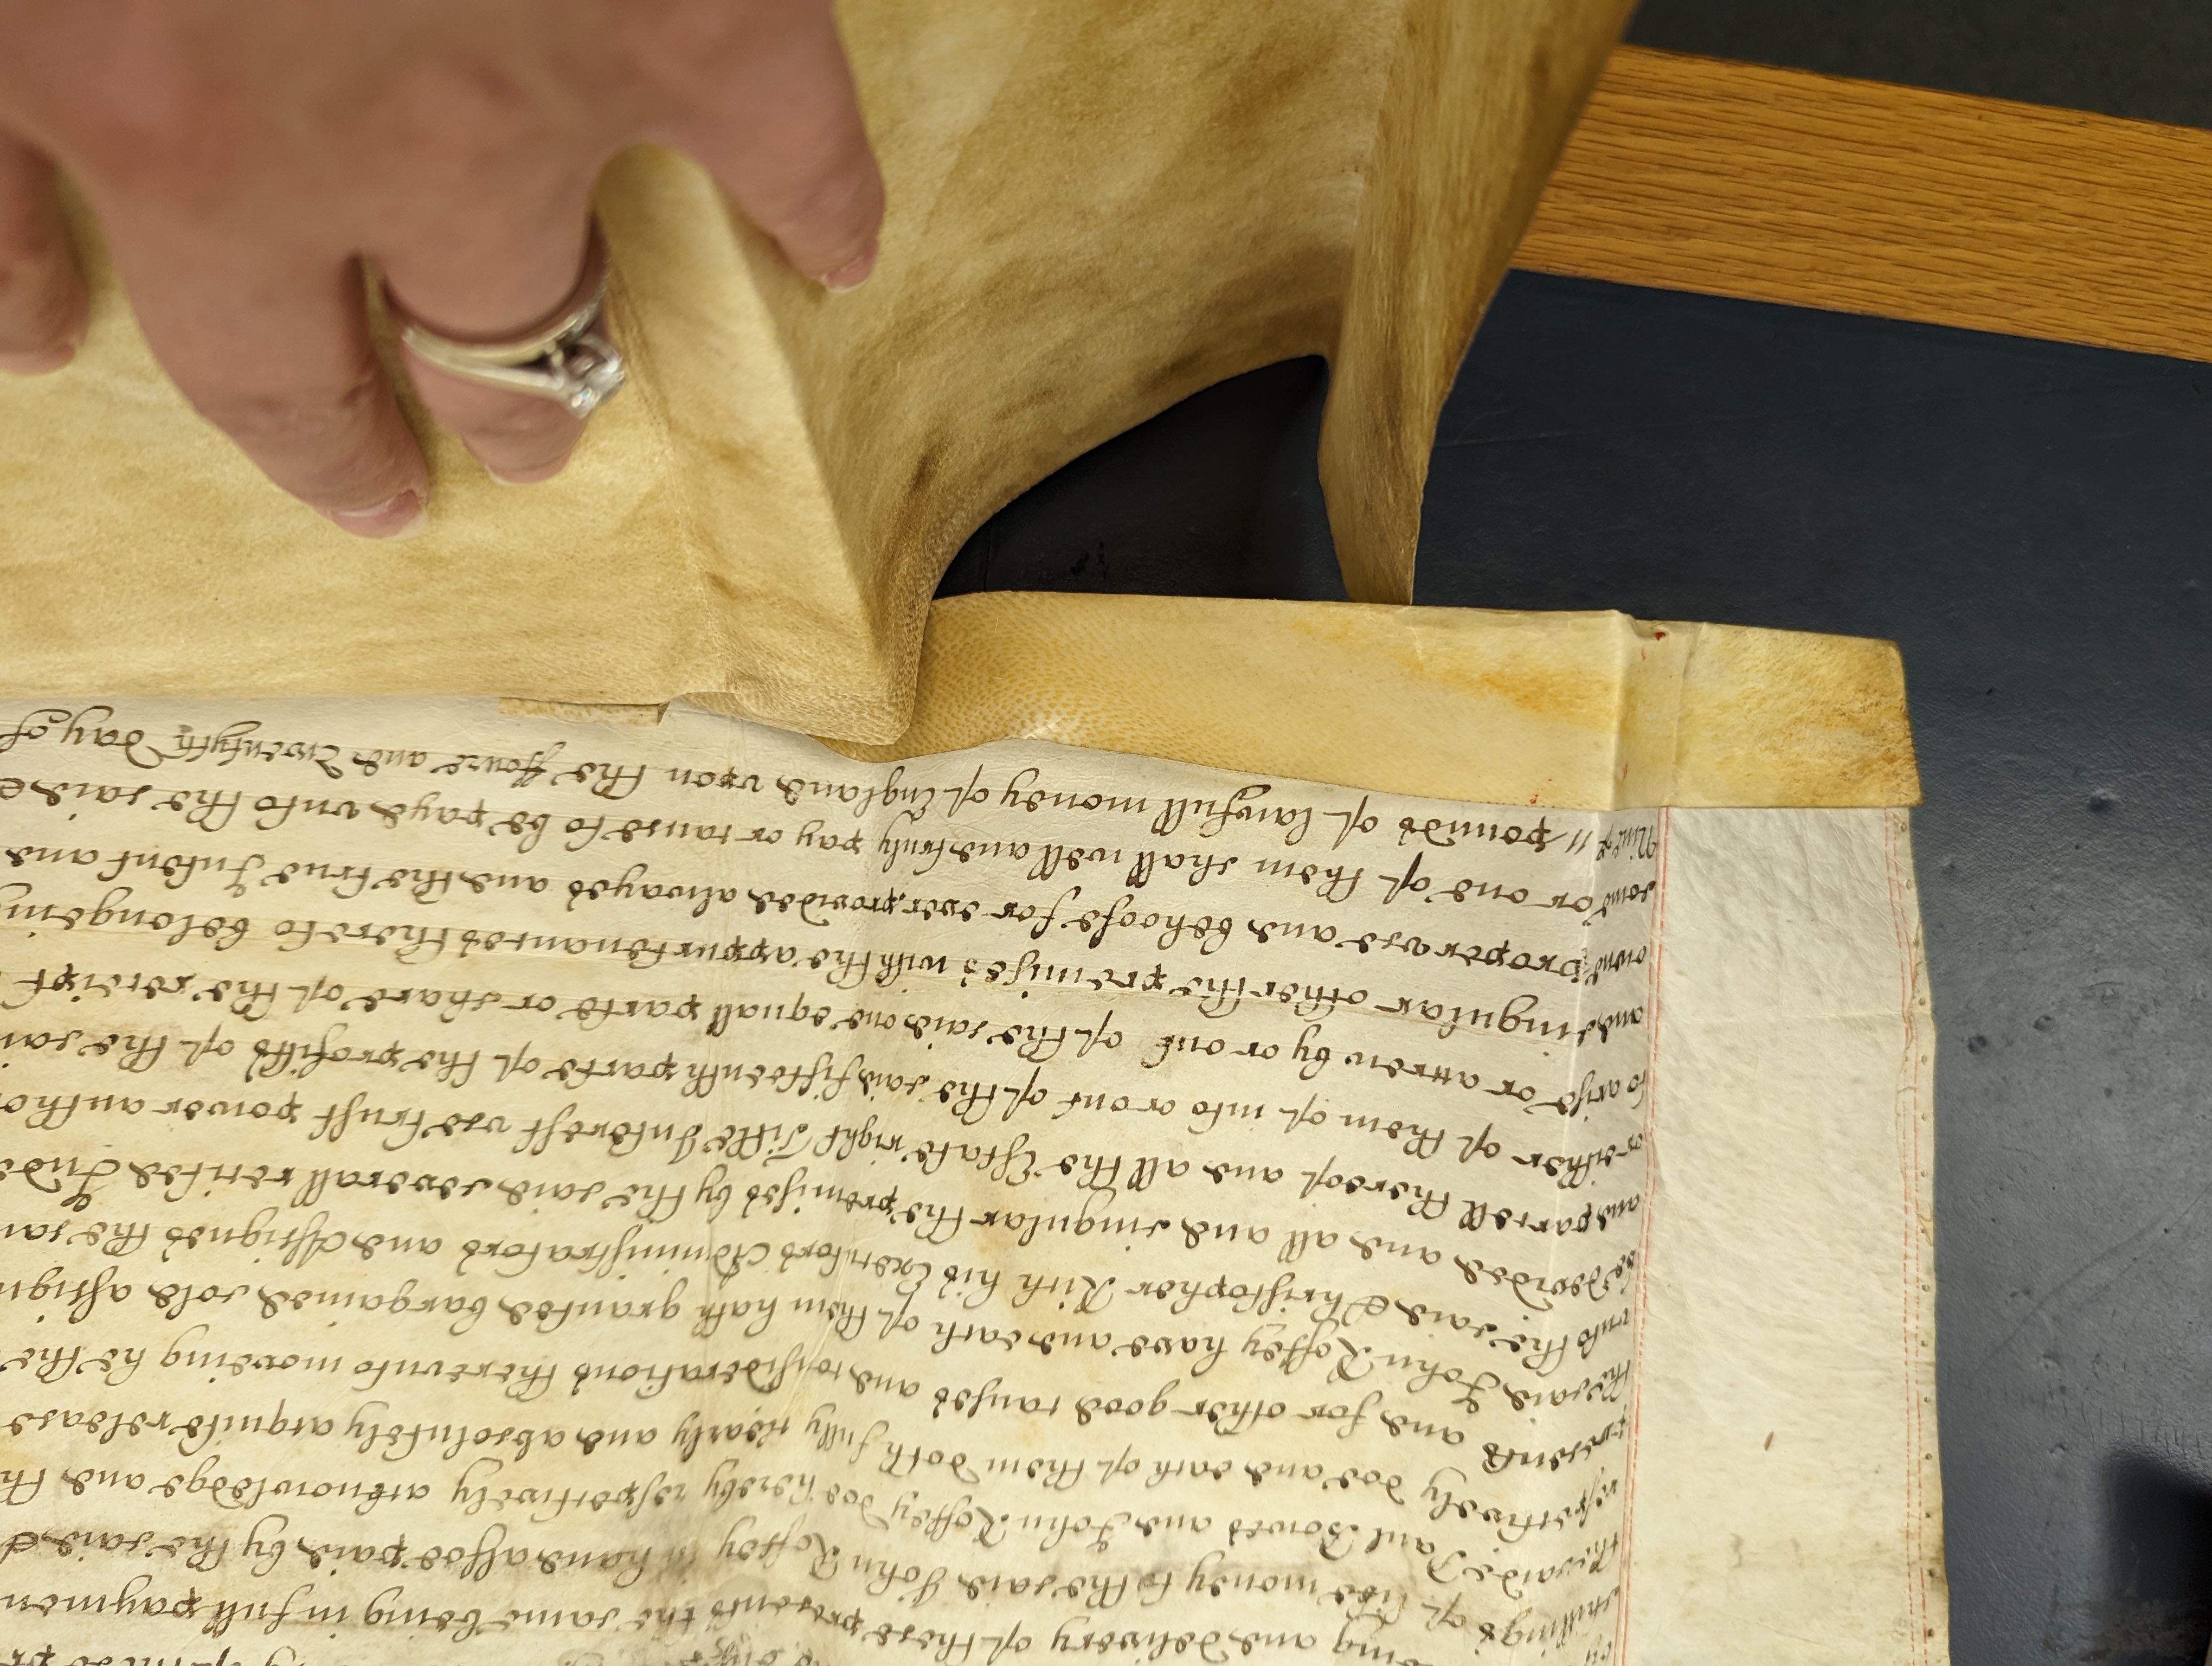 ing and delivery of these presents the same being in full paymen
shillings of like money to the said John Roffey in hand allsoe paid by the said C
the said Paul Bowes and John Roffey doe hereby respectively acknowledge and th
respectively doe and each of them doth fully clearly and absolutely acquite release
presents and for other good causes and considerations therevnto moveing he the
the said John Roffey have and each of them hath granted bargained sold assign
vnto the said Christopher Rich his Executors Administrators and Assignes the sai
be devided and all and singular the premises by the said severall recited Inde
and parcell thereof and all the Estate right Title Interest vse trust power autho
or either of them of into or out of the said fifteenth parte of the profitts of the sai
to arise or accrew by or out of the said one equall parte or share of the receipt
and singular other the premises with the appurtenances thereto belonging
owne proper vse and behoofe for ever provided alwayes and the true Intent and
some or one of them shall well and truly pay or cause to be payd vnto the said C
pounds of lawfull money of England vpon the ffoure and Twentyth day of